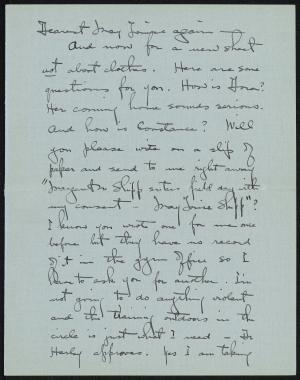 Dearest May Louise again —
And now for a new sheet
not about clothes. Here are some
questions for you. How is Dora?
Her coming home sounds serious.
And how is Constance? Will
you please write on a slip of
paper and send to me right away
"Imogen De Shipp enters field day with
my consent — May Louise Shipp"?
I know you wrote one for me once
before but they have no record
of it in the gym office so I
have to ask you for another. I'm
not going to do anything violent
and the training outdoors in the
circle is just what I need — Dr
approves. Yes I am taking